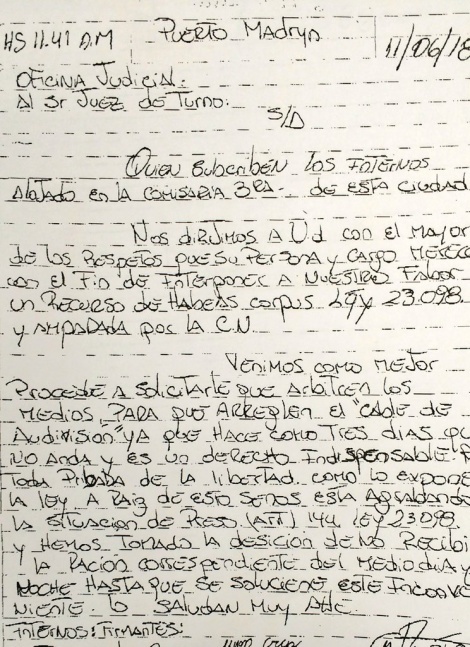 HS 11.41 A.M
PUERTO MADRYN
11/06/18
OFICINA JUDICIAL:
Al Sr JUEZ de TURNO:
S/D
QUIEN SUBSCRIBEN LOS INTERNOS
ALOJADO EN LA COMISARIA 3RA- DE ESTA CIUDAD
NOS DIRIJIMOS A Ud CON EL MAYOR
de LOS RESPETOS QUE SU PERSONA Y CARGO MERECE
CON EL FIN DE INTERPONER A NUESTRO FABOR
UN RECURSO DE HABEAS CORPUS LEY 23.098
Y AMPARADA POR LA C.N.
VENIMOS COMO MEJOR
PROCEDE A SOLICITARLE QUE ARBITREN LOS
MEDIOS PARA QUE ARREGLEN EL "CABLE DE
AUDIVISION" YA QUE HACE COMO TRES DIAS QU
NO ANDA Y ES UN DERECHO INDISPENSABLE P
TODA PRIBADA DE LA LIBERTAD COMO LO EXPONE
LA LEY A RAIZ DE ESTO SENOS ESTA AGRABANDO
LA SITUACION DE PRESO (ART) 144 LEY 23098
Y HEMOS TOMADO LA DESICION DE NO RECIBI
LA RACION CORRESPONDIENTE DEL MEDIO DIA Y
NOCHE HASTA QUE SE SOLUCIONE ESTE INCONVE
NIENTE. LO SALUDAN MUY ATTE.
INTERNOS: FIRMANTES: